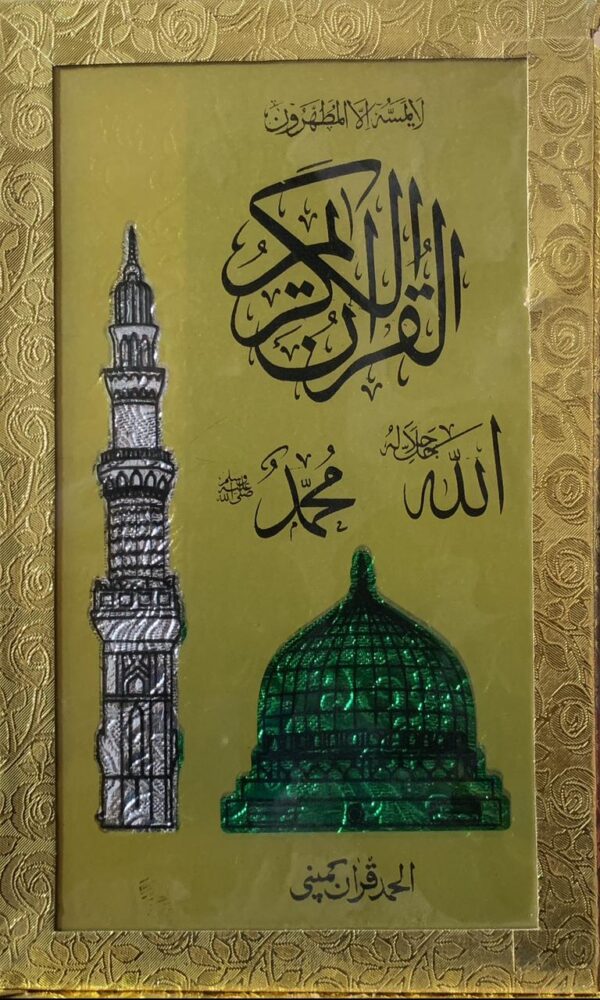 لا یمسہ الا المطھرون
القرآن الکریم
اللہ جل جلالہ
محمد صلی اللہ علیہ وسلم
الحمد قرآن کمپنی